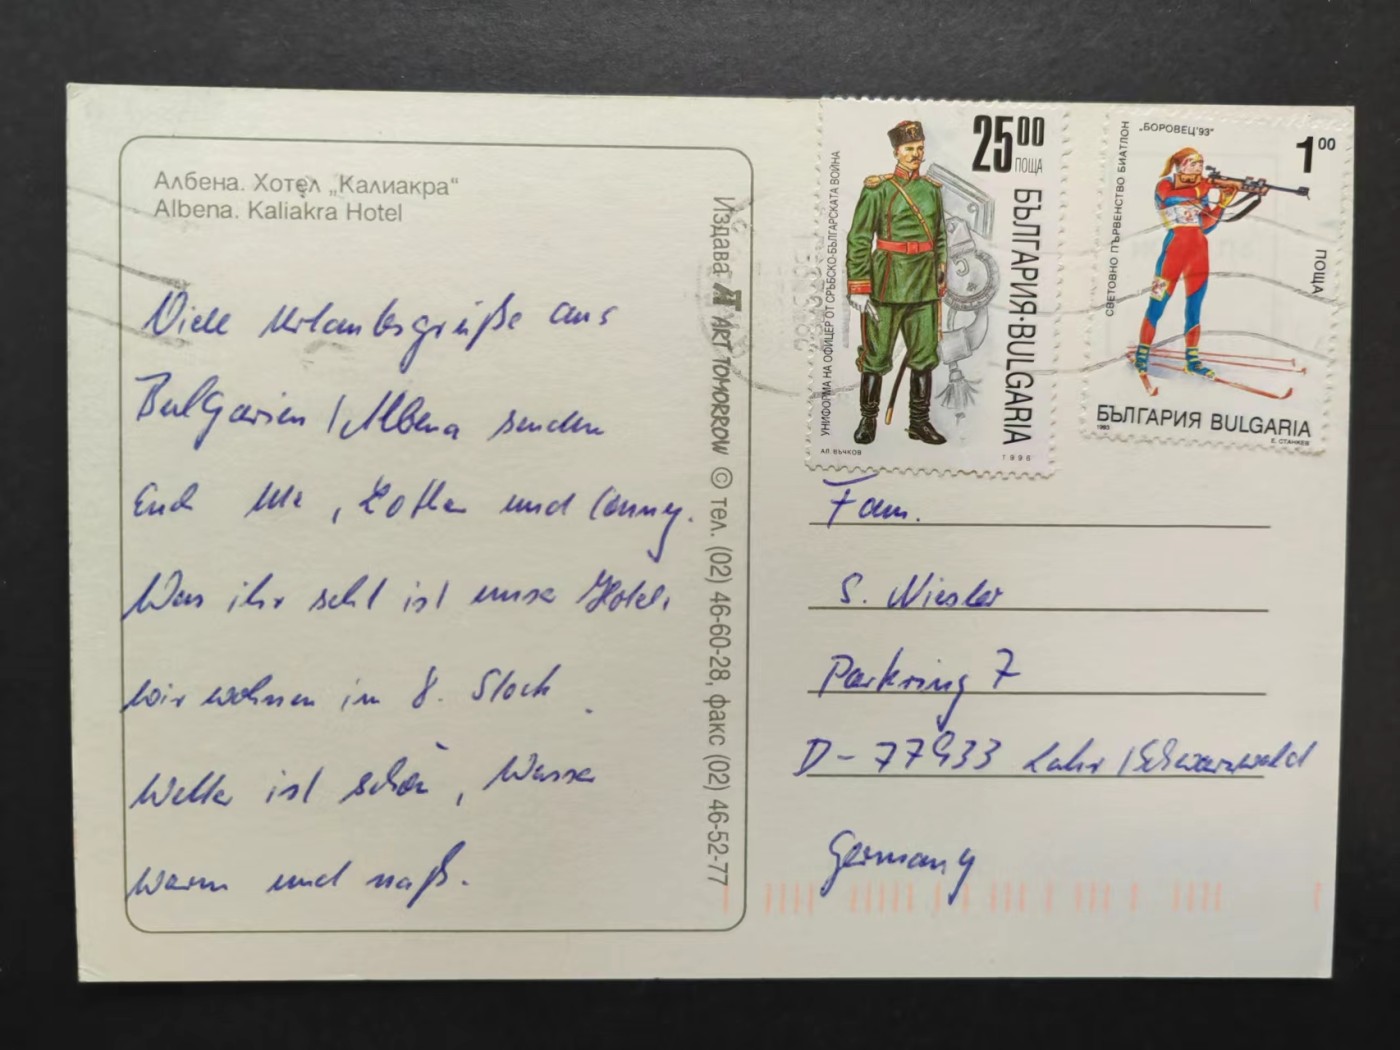 Албена. Хотел „Калиакра“
Albena. Kaliakra Hotel
Viele Urlaubsgrüße aus
Bulgarien / Albena senden
Euch Ute, Lothar und Conny.
Was ihr seht ist unser Hotel,
wir wohnen im 8. Stock.
Wetter ist schön, Wasser
warm und naß.
Издава ART TOMORROW © тел. (02) 46-60-28, факс (02) 46-52-77
25 00
ПОЩА
БЪЛГАРИЯ·BULGARIA
УНИФОРМА НА ОФИЦЕР ОТ СРЪБСКО-БЪЛГАРСКАТА ВОЙНА
АЛ. ВЪЧКОВ
1996
„БОРОВЕЦ'93“
1 00
СВЕТОВНО ПЪРВЕНСТВО БИАТЛОН
ПОЩА
БЪЛГАРИЯ BULGARIA
1993
Е. СТАНКЕВ
Fam.
S. Niesler
Parkring 7
D-77933 Lahr / Schwarzwald
Germany